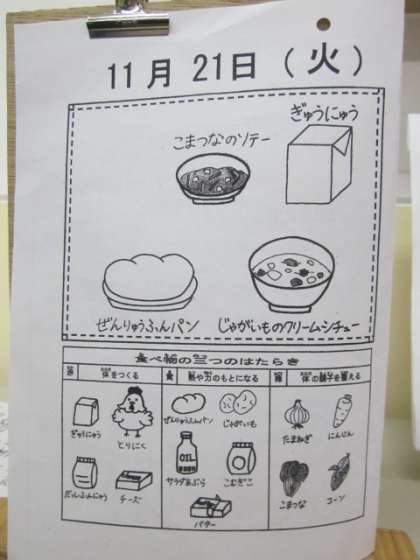 11月 21日 (火)
ぎゅうにゅう
こまつなのソテー
ぜんりゅうふんパン
じゃがいものクリームシチュー
食べ物の三つのはたらき
体をつくる
熱や力のもとになる
体の調子を整える
ぎゅうにゅう
とりにく
だっしふんにゅう
チーズ
ぜんりゅうふんパン
じゃがいも
OIL
サラダあぶら
こむぎこ
バター
たまねぎ
にんじん
こまつな
コーン